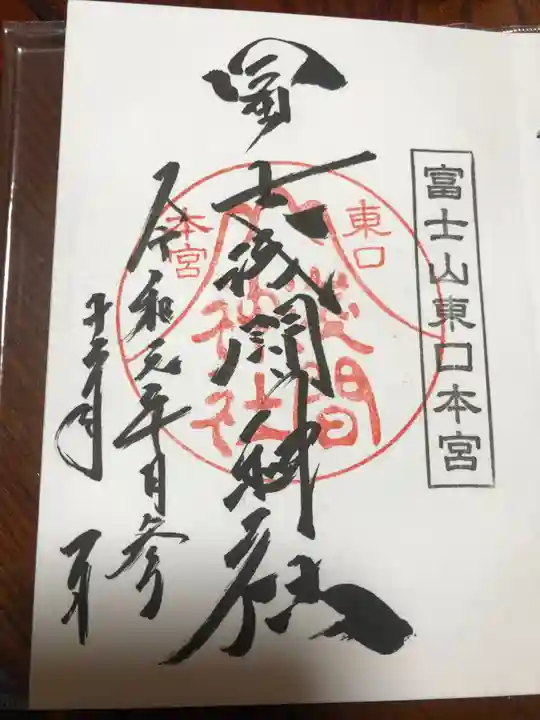 富士山東口本宮
冨士浅間神社
東口
本宮
浅間
神社
令和元年月参
十二月